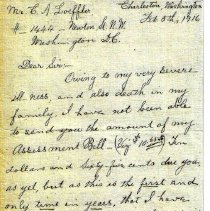 Mr. C. A. Loeffler
Charleston, Washington
# 1444 - Newton St. N.W.
Feb 8th, 1916
Washington D.C.
Dear Sir:-
Owing to my very severe
illness, and also death in my
family, I have not been able
to send you the amount of my
Assessment Bill, Ten
dollars and sixty five cents due you,
as yet, but as this is the first and
only time in years, that I have